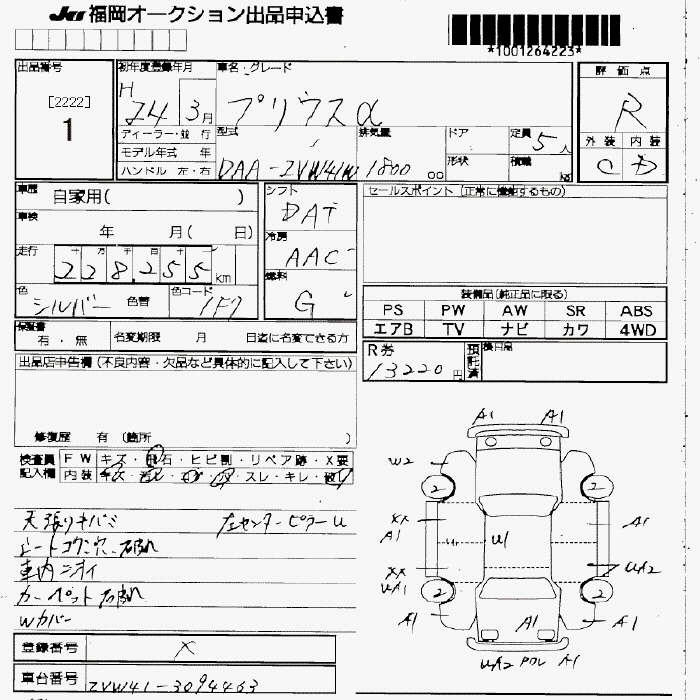 JU 福岡オークション出品申込書
*1001264223*
出品番号
[2222]
1
初年度登録年月
H 24 3月
車名・グレード
プリウスα
評価点
R
外装 内装
C D
ディーラー・並 行
モデル年式 年
ハンドル 左・右
型式
DAA-ZVW41W
排気量
1800 cc
ドア
形状
定員
5人
積載
kg
車歴
自家用( )
車検
年 月( 日)
走行
十 万 千 百 十
228,255km
色
シルバー 色替
色コード
1F7
シフト
DAT
冷房
AAC
燃料
G
セールスポイント (正常に機能するもの)
装備品(純正品に限る)
PS PW AW SR ABS
エアB TV ナビ カワ 4WD
保証書
有・無
名変期限 月 日迄に名変できる方
R券
13220円
預託済
出品店申告欄 (不良内容・欠品など具体的に記入して下さい)
修復歴 有 (箇所 )
検査員記入欄
FW キズ・飛石・ヒビ割・リペア跡・X要
内装 スレ・キレ・破レ
天張りキバミ 左センターピラーU
車内ニオイ
Wカバー
登録番号
X
車台番号
ZVW41-3094463
A1 A1
W2
2 2
XX
A1
A1
U1
XX
UA1
UA2
2 2
A1 A1 A1
UA2 POL A1